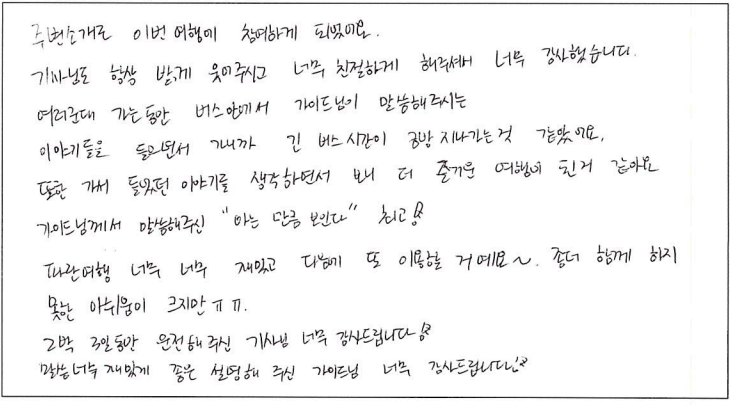 주변소개로 이번 여행에 참여하게 되었어요.
기사님도 항상 밝게 웃어주시고 너무 친절하게 해주셔서 너무 감사했습니다.
여러군데 가는동안 버스안에서 가이드님이 말씀해주시는
이야기들을 들으면서 가니까 긴 버스시간이 금방 지나가는것 같았어요.
또한 가서 들었던 이야기를 생각하면서 보니 더 즐거운 여행이 된거 같아요
가이드님께서 말씀해주신 "아는 만큼 보인다" 최고!
파란여행 너무 너무 재밌고 다음에 또 이용할 거예요~. 좀더 함께 하지
못한 아쉬움이 크지만 ㅠㅠ.
2박 3일동안 운전해 주신 기사님 너무 감사드립니다!
말씀 너무 재밌게 좋은 설명해 주신 가이드님 너무 감사드립니다!